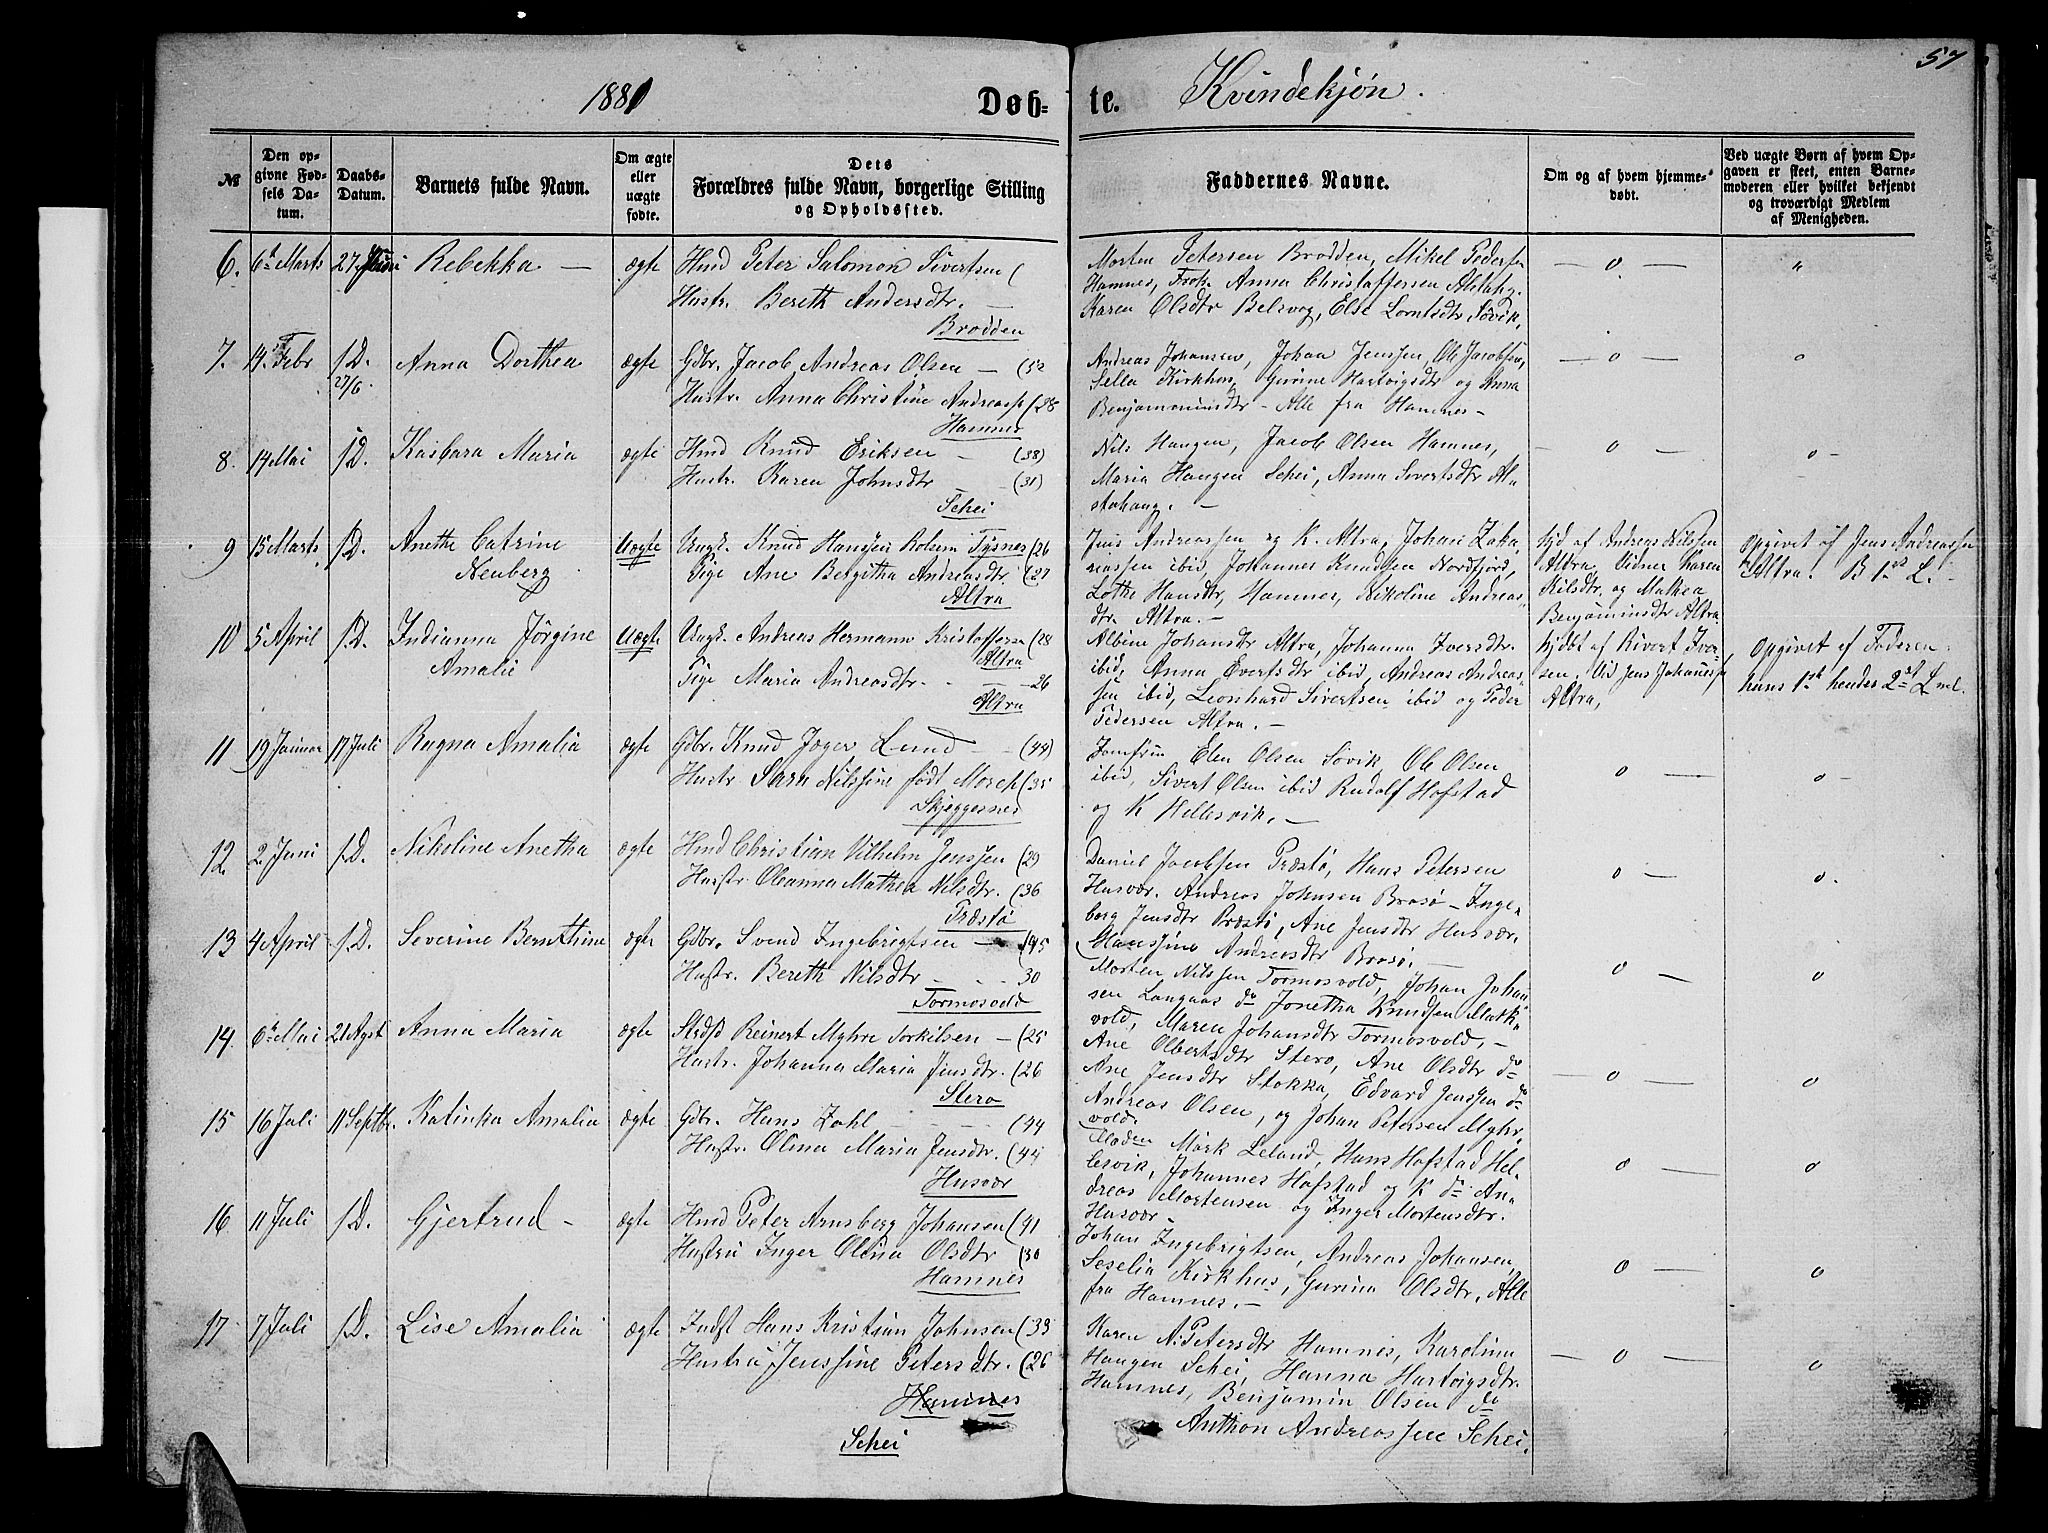 57
1881 Døb-
te. Kvindekjøn.
№
Den opgivne Fødsels Datum.
Daabs-Datum.
Barnets fulde Navn.
Om ægte eller uægte fødte.
Dets Forældres fulde Navn, borgerlige Stilling og Opholdssted.
Faddernes Navne.
Om og af hvem hjemmedøbt.
Ved uægte Børn af hvem Opgaven er skeet, enten Barnemoderen eller hvilket bekjendt og troværdigt Medlem af Menigheden.
6. 6t Marts 27 Juni Rebekka — ægte Hmd Peter Salomon Sivertsen (
Hustr. Bereth Andersdtr. —
Brodden
Morten Petersen Brodden, Mikel Peders.
Hamnes, Frøk. Anna Christoffersen Alstahg.
Karen Olsdtr Belsvog, Else Lorntsdtr Søvik,
— o — "
7. 14 Febr 1.D. 27/6. Anna Dorthea ægte Gdbr. Jacob Andreas Olsen — (52
Hustr. Anna Christine Andreasd (28
Hamnes
Andreas Johansen, Johan Jenssen, Ole Jacobsen,
Sella Kirkhus, Gurine Hartvigsdtr og Anna
Benjamminsdtr - Alle fra Hamnes -
— o — o
8. 14 Mai 1.D. Kasbara Maria ægte Hmd Knud Eriksen - (38)
Hustr. Karen Johnsdtr - (31)
Schei
Nils Haugen, Jacob Olsen Hamnes,
Maria Haugen Schei, Anna Sivertsdtr Al-
stahaug. —
— o — o -
9 15 Marts 1.D. Anethe Catrine Uægte Ungk. Knud Hanssen Tysnes (26
Neuberg Pige Ane Bergitha Andreasdtr. (27
Altra
Jens Andreassen og K. Altra, Johan Zaka-
reassen ibid, Johannes Knudsen Nordfjord,
Lothe Hansdtr, Hamnes, Nikoline Andreas-
dtr. Altra. —
hjd af Andreas Nilssen
Altra. Vidner Karen
Nilsdtr. og Mathea
Benjaminsdtr Altra
Opgivet af Jens Andreassen
Altra. B 1st L. -
10 5 April 1.D. Indianna Jørgine Uægte Ungk. Andreas Hermann Kristoffersen (28
Amalie Altra
Pige Maria Andreasdtr. - — 26
Altra
Albine Johansdtr Altra, Johanna Iversdtr.
ibid, Anna Evertsdtr ibid, Andreas Andreas-
sen ibid, Leonhard Sivertsen ibid og Peder
Pedersen Altra. —
hjdbt af Sivert Iver-
sen. Vid Jens Johanessen
Altra,
Opgivet af Faderen.
hans 1st hendes 2st Lml.
11 19 Januar 17 Juli Ragna Amalia ægte Gdbr. Knud Jæger Lund — (44)
Hustr Sara Nilssine født Morch (35
Skjeggesnes
Jomfru Elen Olsen Søvik, Ole Olsen
ibid, Sivert Olsen ibid Rudolf Hofstad
og K Hellesvik, —
o — o -
12. 2 Juni 1.D. Nikoline Anetha ægte Hmd Christian Vilhelm Jenssen (29
Hustr Oleanna Mathea Nilsdtr. (36
Præstø
Daniel Jacobsen Præstø, Hans Petersen
Husvær. Andreas Johnsen Brasø - Inge-
borg Jensdtr Præstø, Ane Jensdtr Husvær.
Hanssine Andreasdtr Brasø. —
o — o.
13 4 April 1.D. Severine Bernthine ægte Gdbr. Svend Ingebrigtsen — (45
Hustr. Bereth Nilsdtr - - - 30
Tormosvold
Morten Nilssen Tormosvold, Johan Johan-
sen Langaas do Jonetha Knudsen
vold, Maren Johansdtr Tormosvold, —
o — o
14. 6t Mai 21 Agst Anna Maria ægte Strdsd Reinert Myhre Torkilsen — (25
Hustr. Johanna Maria Jensdtr. (26
Stero
Ane Olbertsdtr Stero, Ane Olsdtr do
Ane Jensdtr Stokka, Edvard Jenssen do
Andreas Olsen, og Johan Petersen Myhr-
vold.
— o — o
15 16 Juli 11 Septbr. Katinka Amalia ægte Gdbr. Hans Zahl - - - - (44
Hustr. Olina Maria Jensdtr. (44
Husvær
Mork Leland, Hans Hofstad Hel-
lesvik, Johannes Hofstad og K do An-
dreas Mortensen og Inger Mortensdtr.
Husvær -
o — o
16. 11 Juli 1.D. Gjertrud - ægte Hmd Peter Arnsberg Johansen (41
Hustru Inger Olina Olsdtr (30
Hamnes
Johan Ingebrigtsen, Andreas Johansen,
Seselia Kirkhus, Gurina Olsdtr, Alle
fra Hamnes. —
o — o
17. 7 Juli 1.D. Lise Amalia ægte Indst Hans Kristian Johnsen (33
Hustru Jenssine Petersdtr. (26
Hamnes
Schei
Karen A. Petersdtr Hamnes, Karolina
Haugen Schei, Hanna Hartvigsdtr.
Hamnes, Benjamin Olsen do
Anthon Andreassen Schei.
— o — o